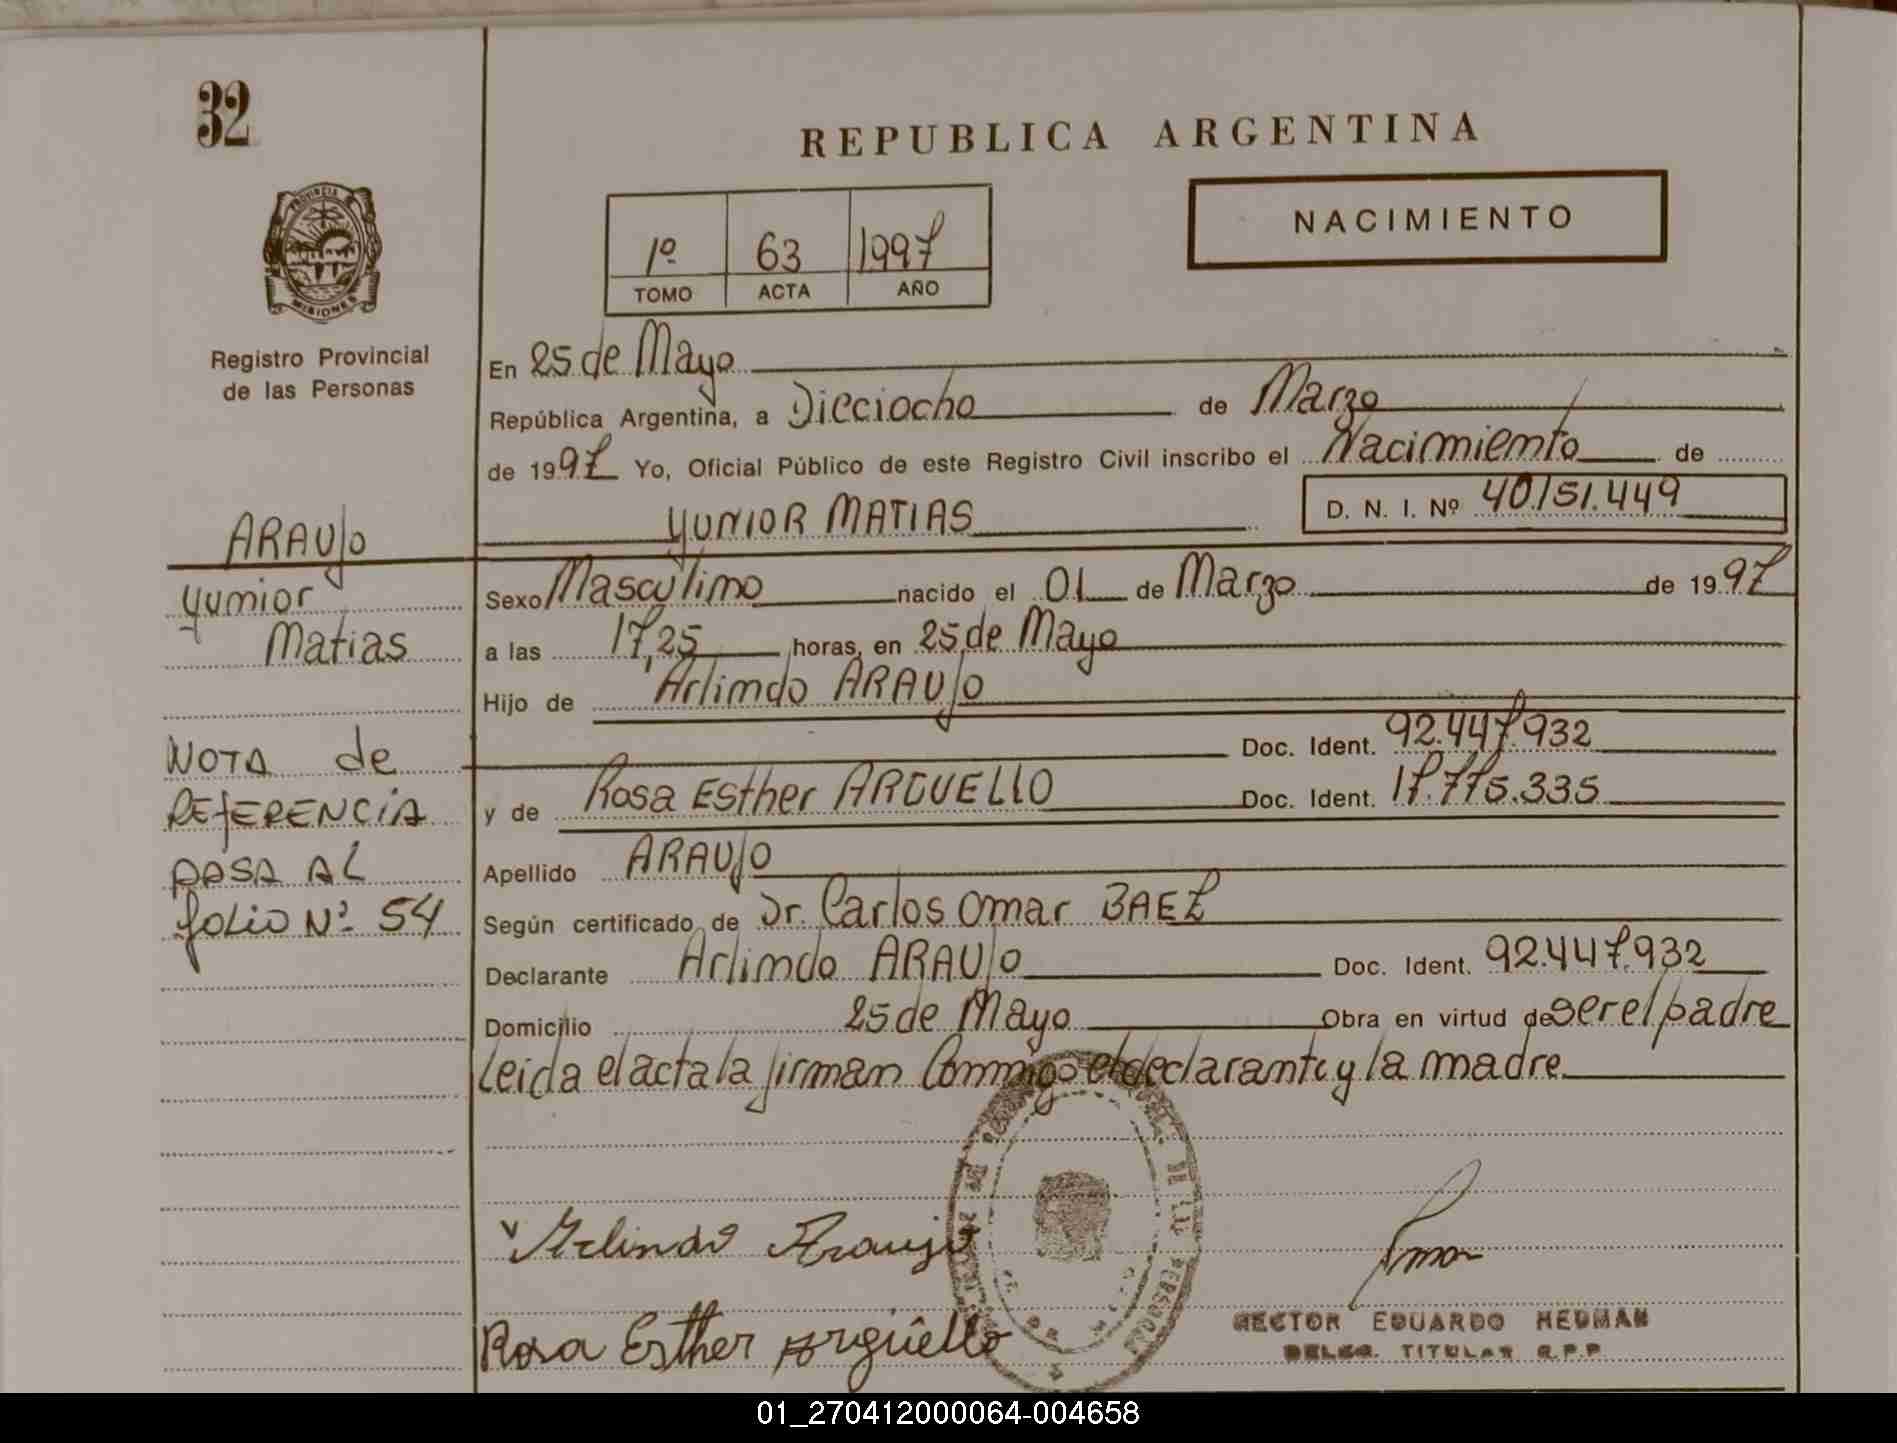 32
REPUBLICA ARGENTINA
NACIMIENTO
1º 63 1997
TOMO ACTA AÑO
PROVINCIA
MISIONES
Registro Provincial
de las Personas
En 25 de Mayo
República Argentina, a Dieciocho de Marzo
de 1997 Yo, Oficial Público de este Registro Civil inscribo el Nacimiento de
YUNIOR MATIAS D. N. I. Nº 40.151.449
ARAUJO
Yunior
Matias
Sexo Masculino nacido el 01 de Marzo de 1997
a las 17,25 horas, en 25 de Mayo
Hijo de Arlindo ARAUJO
Doc. Ident. 92.447.932
y de Rosa Esther ARGUELLO Doc. Ident. 17.775.335
NOTA de
REFERENCIA
PASA AL
folio Nº 54
Apellido ARAUJO
Según certificado de Dr. Carlos Omar BAEZ
Declarante Arlindo ARAUJO Doc. Ident. 92.447.932
Domicilio 25 de Mayo Obra en virtud de ser el padre
Leida el acta la firman Conmigo el declarante y la madre
Arlindo Araujo
Rosa Esther Argüello
HECTOR EDUARDO HEDMAN
DELEG. TITULAR R.P.P.
01_270412000064-004658